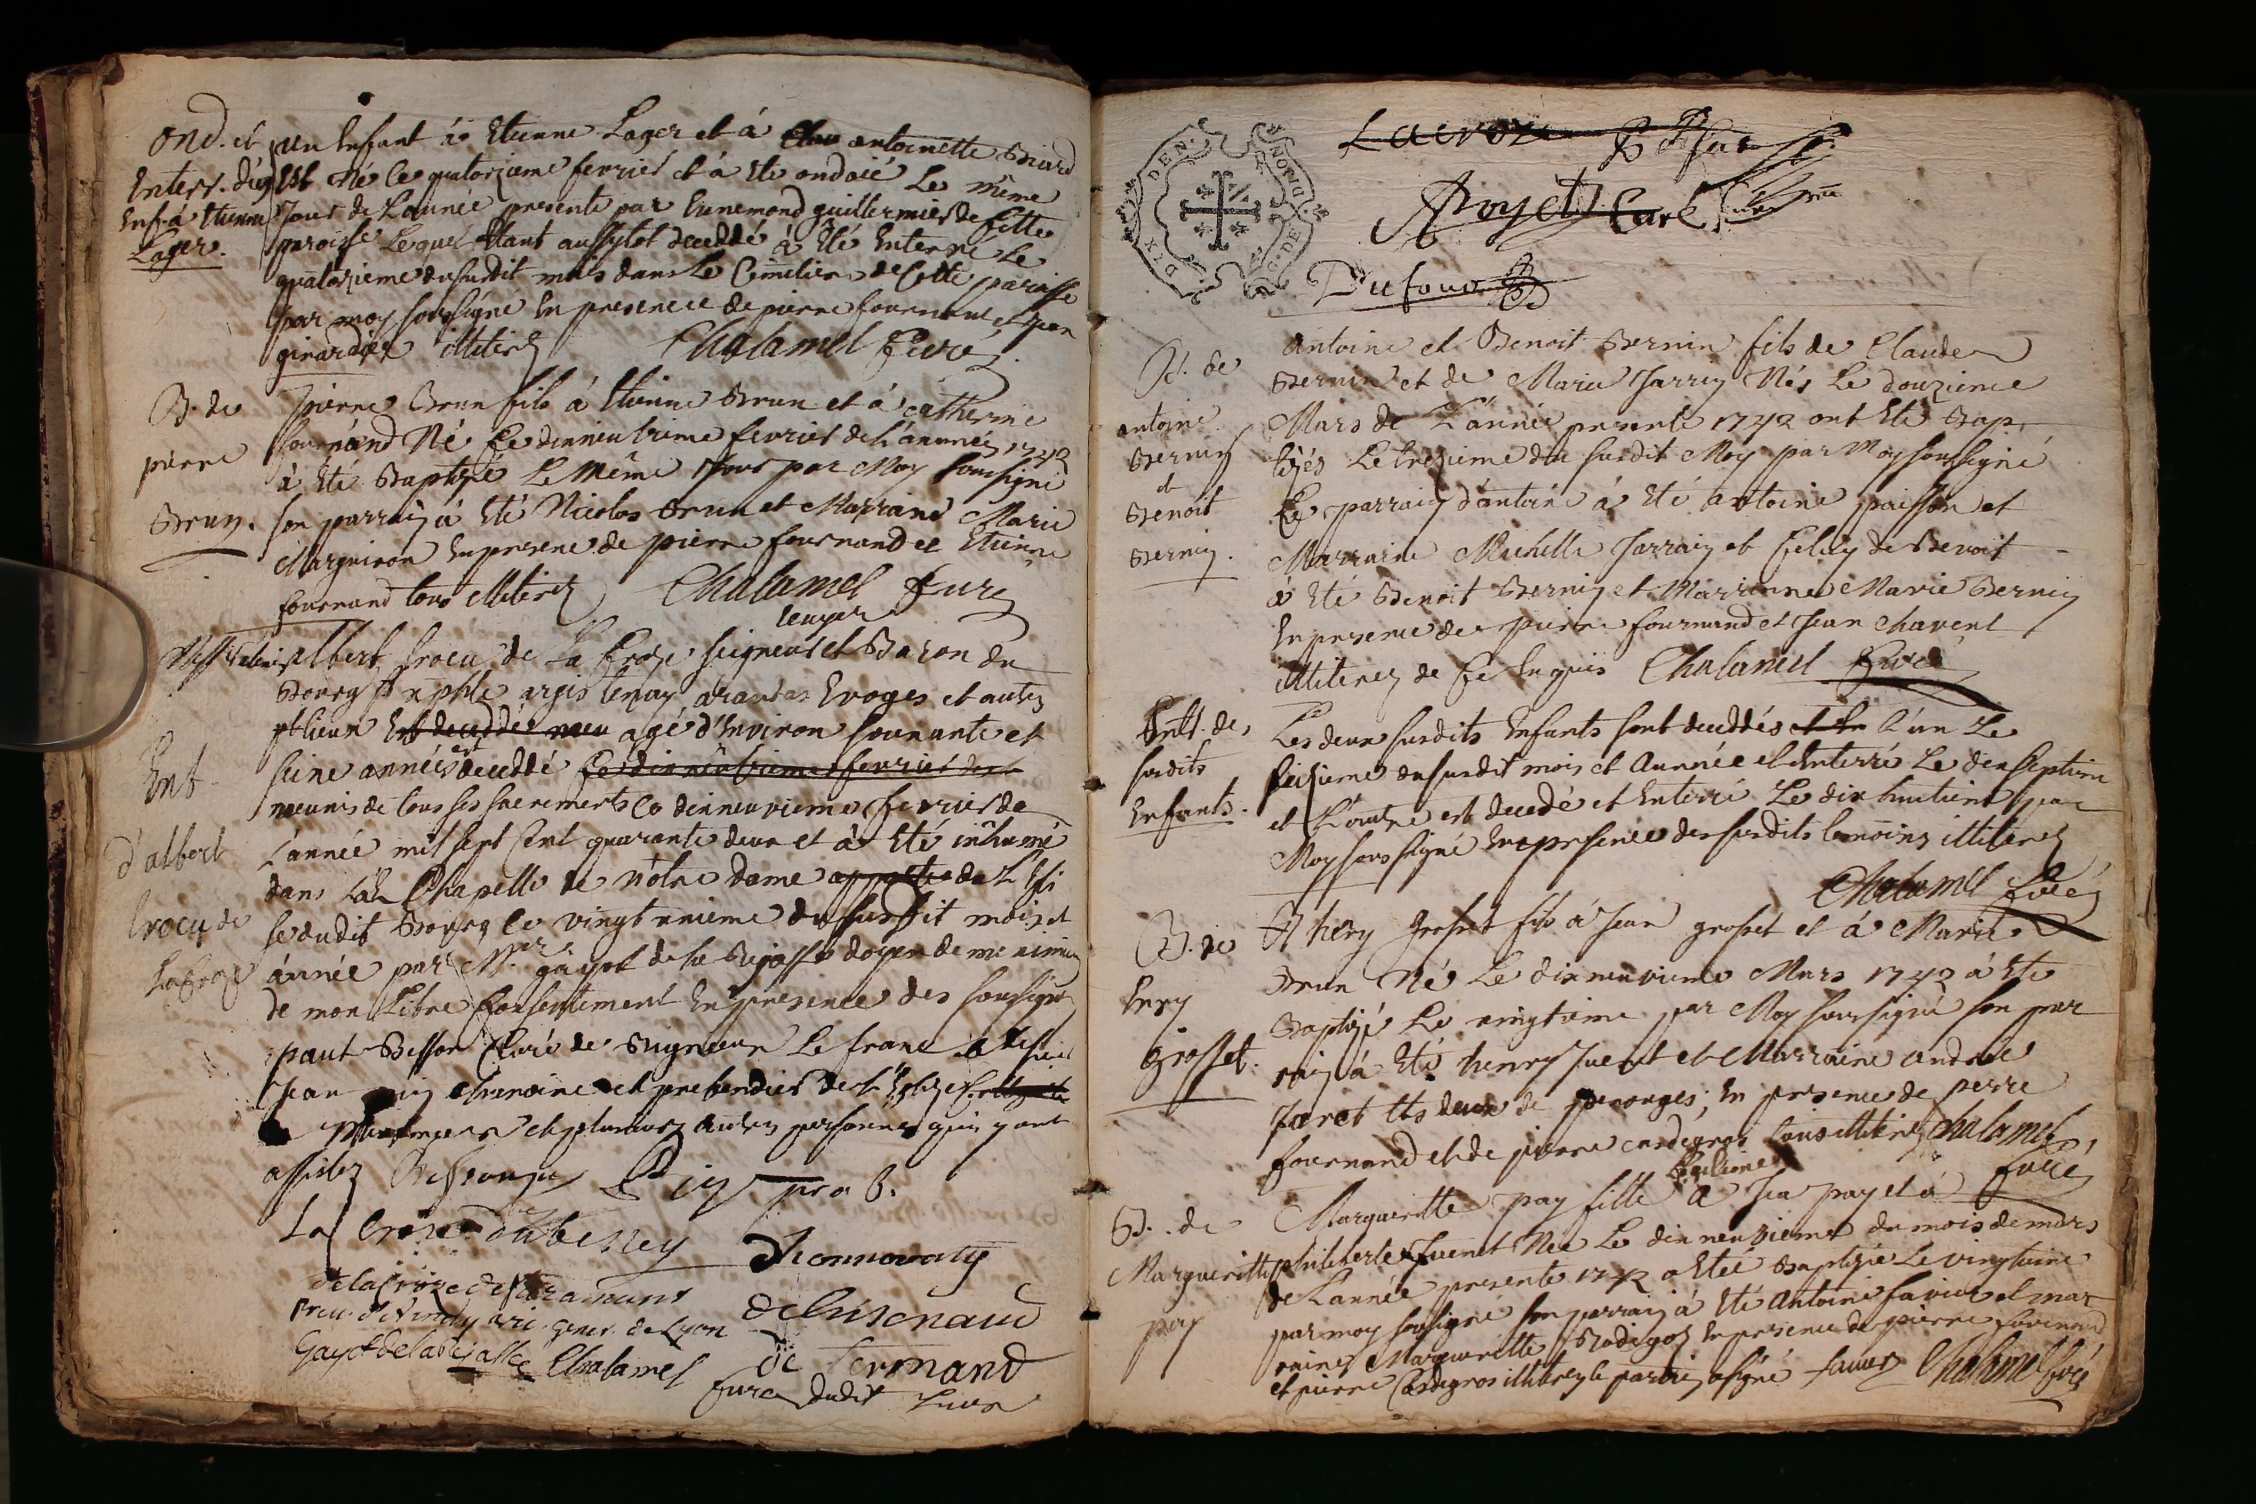 Ond. et
Enterr. d'un
Enf. à Etienne
Lager.
un Enfant à Etienne Lager et à antoinette Briard
Est Né le quatorzieme fevrier et à Ete ondoié Le même
Jour de L'année presente par Ennemond guillermier de Cette
paroisse Lequel Etant aussytot decedé à Eté Enterré Le
quatorzieme dusudit mois dans Le Cimetiere de Cette paroisse
par moy soussigné En presence de pierre fournand et Jean
girardier illiterez Chalamel Curé
B. de
pierre
Brun.
pierre Brun fils à Etienne Brun et à catherine
fournand Né Le dixneuvieme fevrier de L'année 1742
à Eté Baptizé Le Même Jour par Moy soussigné
son parrain à Eté Nicolas Brun et Marraine Marie
Marguiron En presence de pierre fournand et Etienne
fournand tous illiterez Chalamel Curé
Ent
d'albert
trocu de
La Croze
Messire albert trocu de La Croze Ecuyer seigneur et Baron du
Bourg St Xphle argis tenay arandas Evoges et autres
places Est decedé agé d'Environ soixante et
seize années est decedé Le dixneuvieme fevrier
meunis de tous ses sacrements Le dixneuvieme fevrier de
L'année mil sept Cent quarante deux et à Eté inhumé
dans La Chapelle de Nôtre dame de L'Egli
se dudit Bourg Le vingt unieme dusudit mois et
année par Mre gayot de la Bujasse doyen de meximieux
de mon Libre Consentement En presence des soussignés
paul Besson Curé de Birieux Le franc
Jean chanoine et prebendier de L'Eglise
et plusieurs autres personnes qui y ont
assistez pre b.
La Croze dubessey Deconnovaty
delacroze de
Gayot de la bujasse Chalamel de fermand
Curé dudit Lieux
DIX DEN. G. DE DIJON
Lacroze
Royet Curé
Dufour
B. de
antoine
Bernin
et
Benoit
Bernin.
Antoine et Benoit Bernin fils de Claude
Bernin et de Marie Jarrin Nés Le douzieme
Mars de L'année presente 1742 ont Eté Bap
tizés Le treizieme du susdit Moy par Moy soussigné
Le parrain d'antoine à Eté antoine poisson et
Marraine Michelle Jarrain et Celuy de Benoit
à Eté Benoit Bernin et Marrainne Marie Bernin
En presence de pierre fournand et Jean chavent
illiterez de Ce Enquis Chalamel Curé
Entt. des
susdits
Enfants.
Les deux susdits Enfants sont decedés L'un Le
seizieme dusudit mois et Année et Enterré Le dix septieme
et L'autre est decedé et Enterré Le dix huitieme par
Moy soussigné En presence des susdits temoins illiterez
Chalamel Curé
B. de
henry
grosset.
henry grosset fils à Jean grosset et à Marie
Brun Né Le dixneuvieme Mars 1742 à Ete
Baptizé Le vingtieme par Moy soussigné son par
rain à Eté henry Juenet et Marraine andrée
Jaret tts deux de perouges; En presence de pierre
fournand et de pierre cardegros tous illiterez Chalamel
Curé
B. de
Marguerite
pay
Marguerite pay fille Legitime à Jean pay et à
philiberte Juenet Née Le dixneuvieme du mois de mars
de L'année presente 1742 à Etée Baptizée Le vingtieme
par moy soussigné son parrain à Eté Antoine favier et mar
raine Marguerite Brodigoz En presence de pierre fournand
et pierre Cardegros illiterez le parrain a signé favier Chalamel Curé